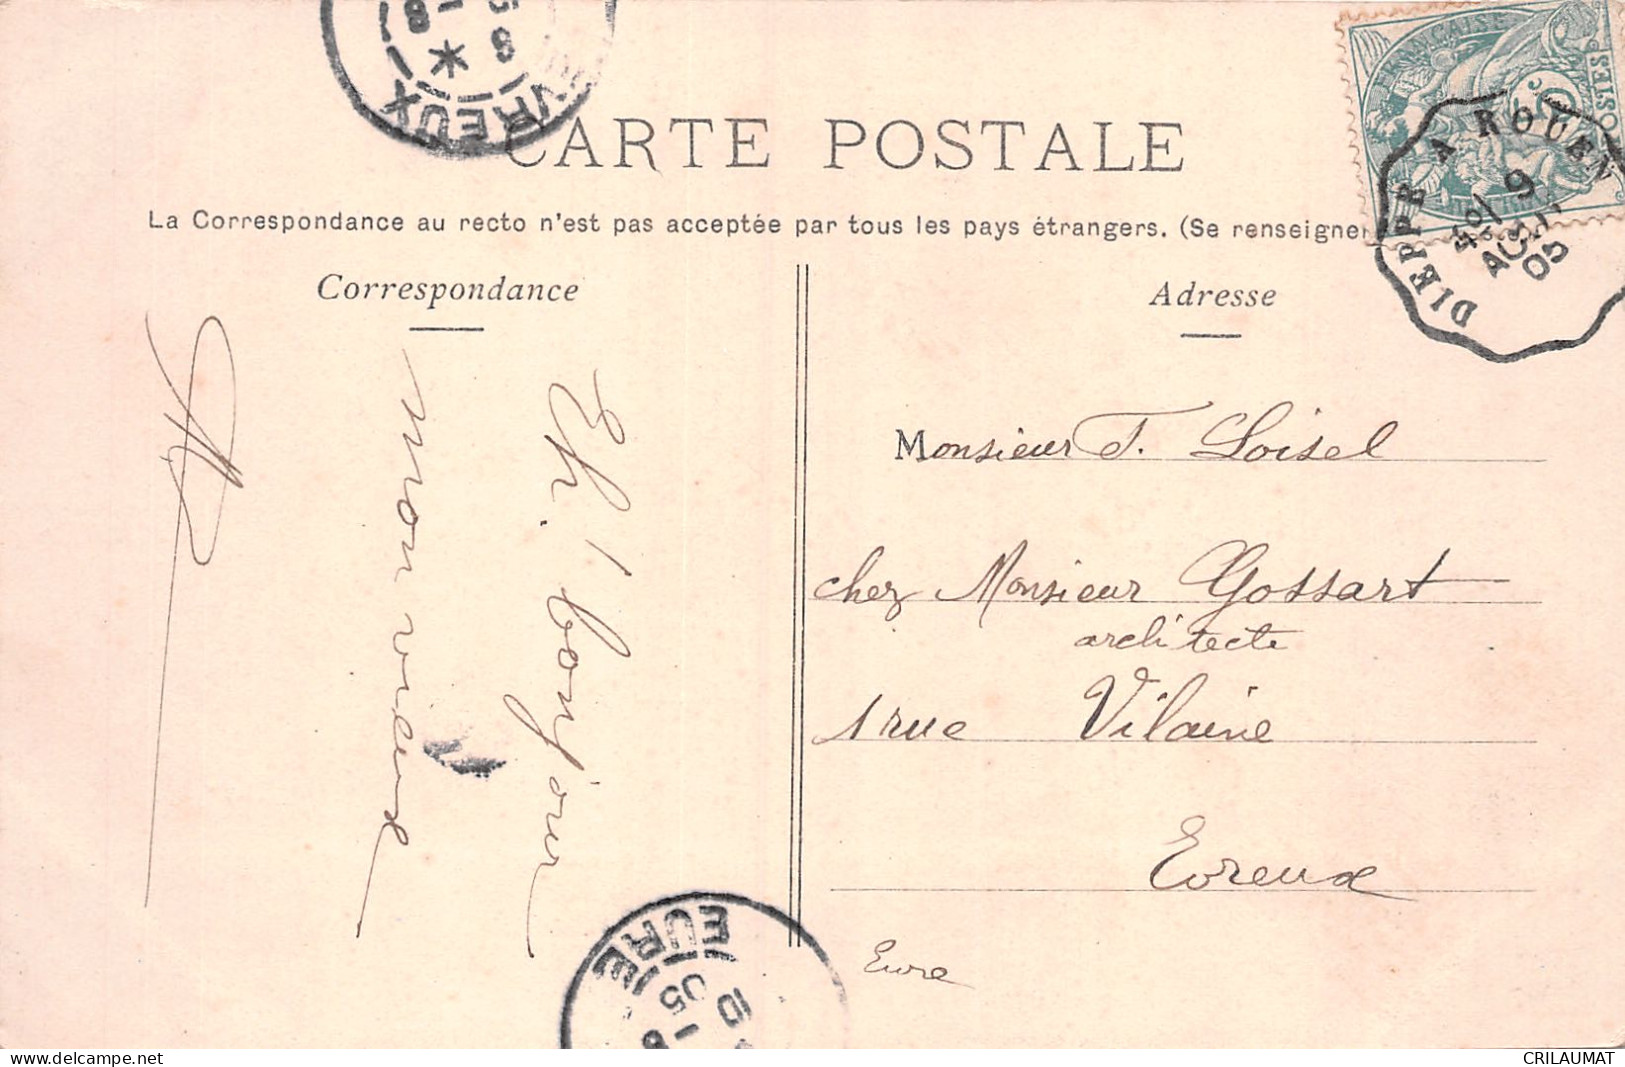 EVREUX
8
CARTE POSTALE
FRANÇAISE
POSTES
5c
DIEPPE A ROUEN
9
AOUT
05
La Correspondance au recto n'est pas acceptée par tous les pays étrangers. (Se renseigner
Correspondance
Adresse
Eh ! bonjour
mon vieux
Monsieur T. Loisel
chez Monsieur Gossart
architecte
1 rue Vilaine
Evreux
Eure
EURE
10
05
CRILAUMAT